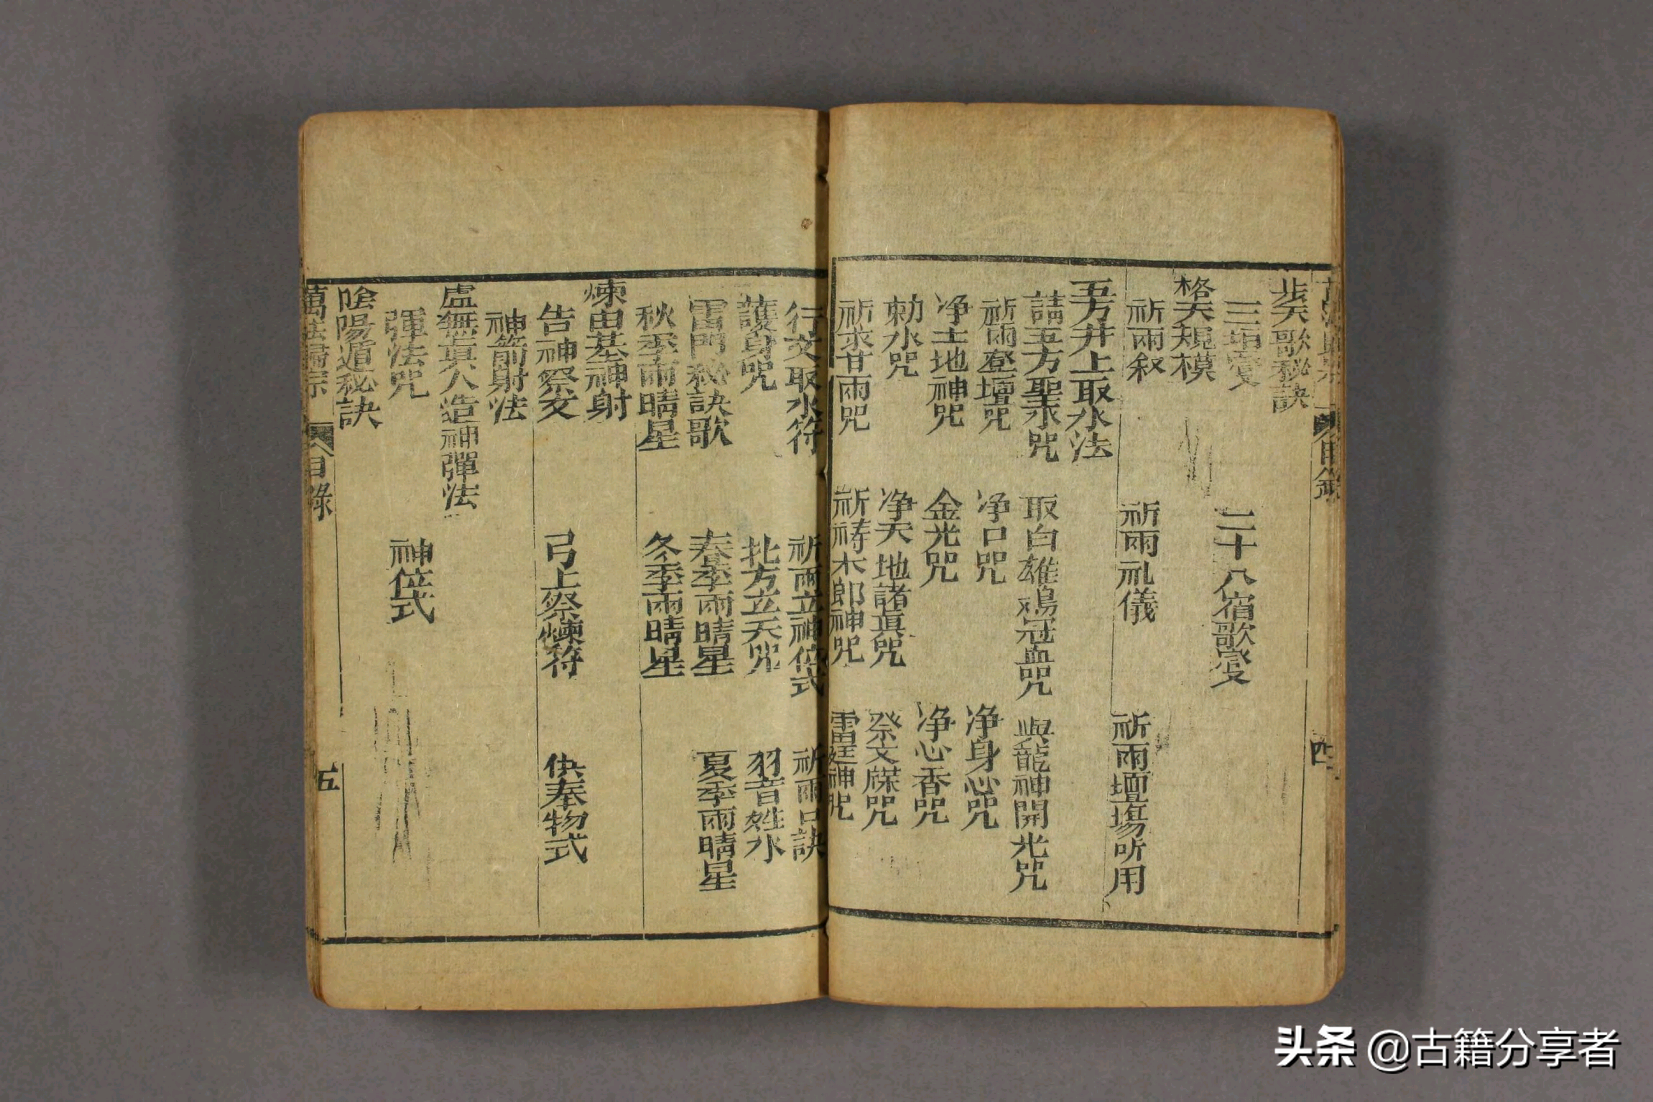 步天歌秘訣
三垣愛 二十八宿歌愛
格天規模
祈雨叙 祈雨礼儀 祈雨壇塲所用
五方井上取水法
請五方聖水咒 取白雄鷄冠血咒 與龍神開光咒
祈雨登壇咒 净口咒 净身心咒
净土地神咒 金光咒 净心香咒
勅水咒 净天地諸真咒 祭文牒咒
祈求甘雨咒 祈祷木郎神咒 雷霆神咒
目錄
四
行文取水符 祈雨立神位式 祈雨口訣
護身咒 北方立天咒 羽音姓水
雷門秘訣歌 春季雨晴星 夏季雨晴星
秋季雨晴星 冬季雨晴星
煉由基神射
告神祭文 弓上祭煉符 供奉物式
神箭射法
虛無真人造神彈法
彈法咒 神位式
陰陽遁秘訣
萬法歸宗 目錄 五
头条 @古籍分享者